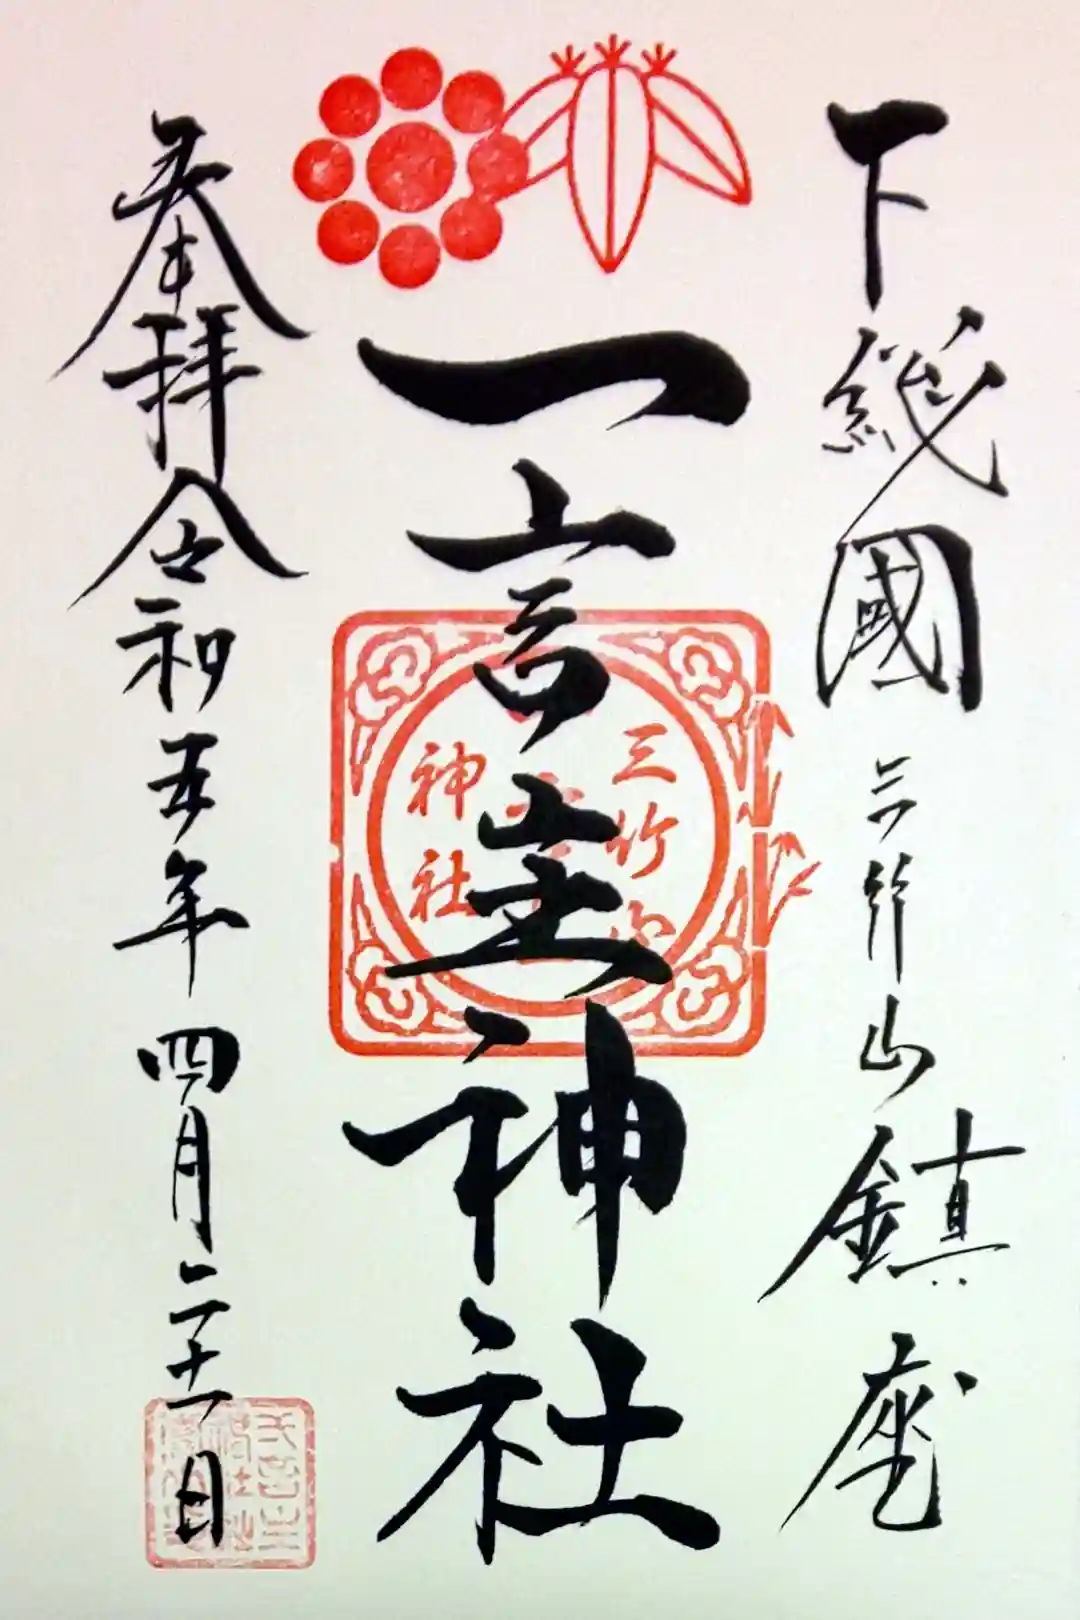 下総國三竹山鎮座
一言主神社
三竹山
神社
奉拝令和五年四月二十一日